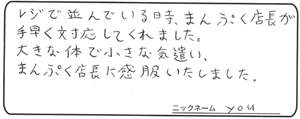 レジで並んでいる時、まんぷく店長が
手早く対応してくれました。
大きな体で小さな気遣い、
まんぷく店長に感服いたしました。
ニックネーム you